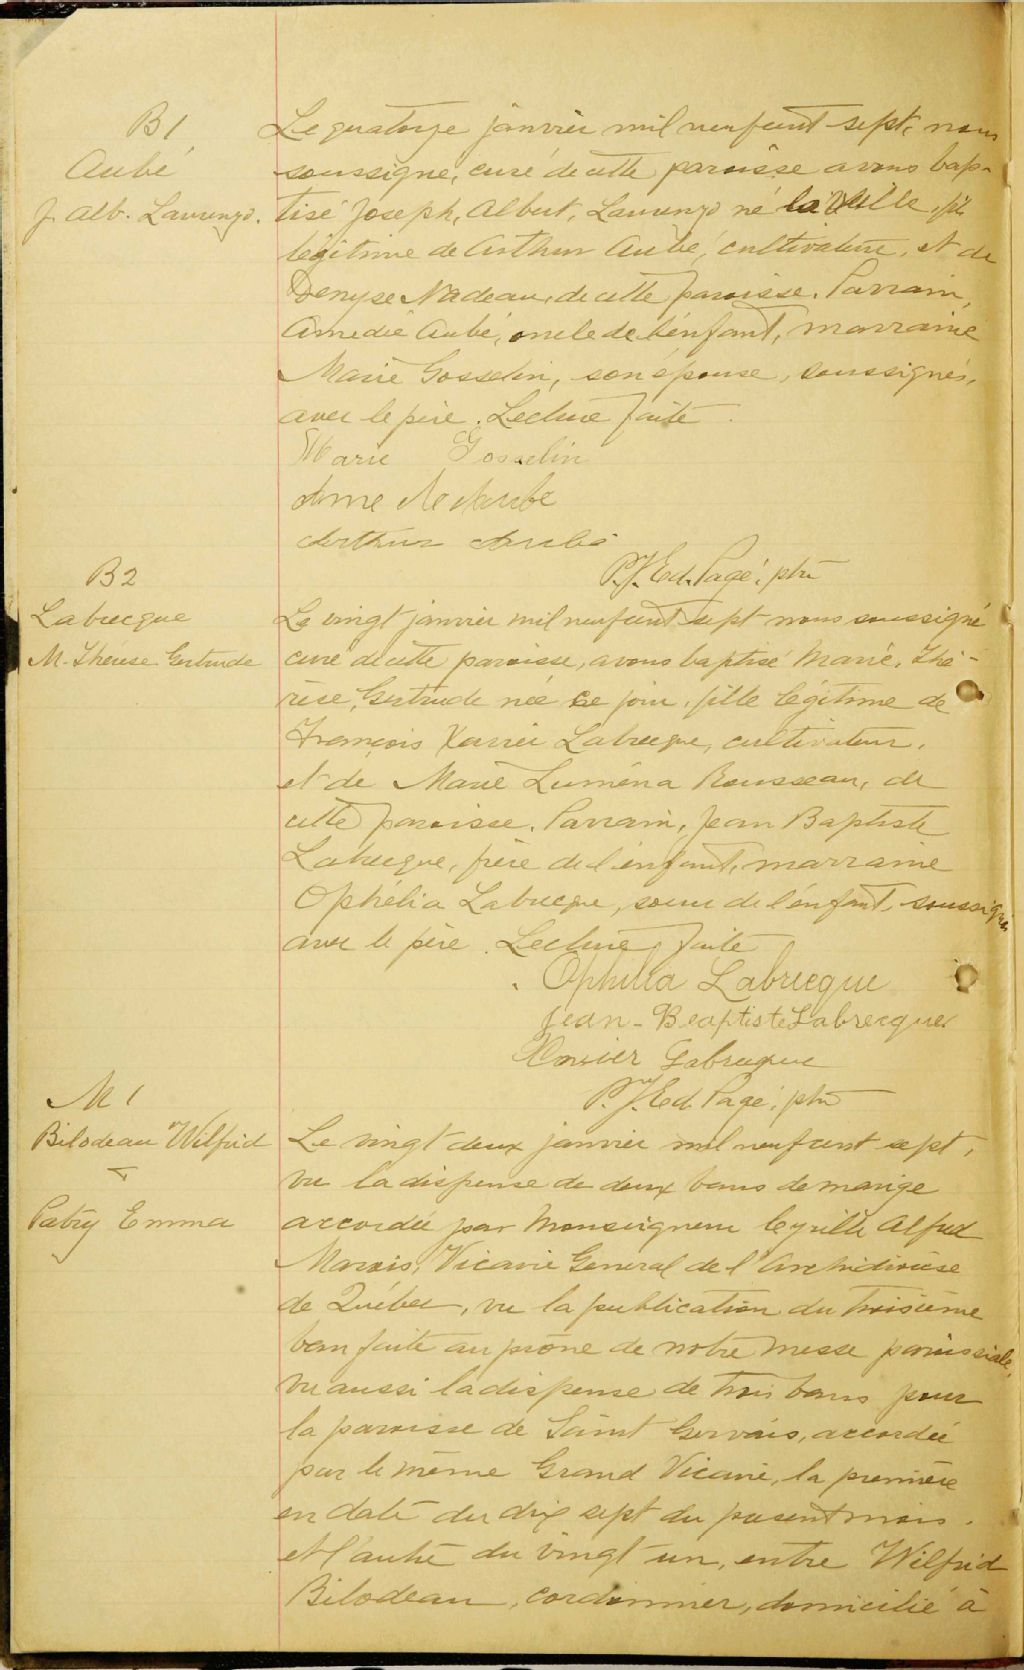 B1
Aubé
J. Alb. Laurenzo.
Le quatorze janvier mil neuf cent sept, nous
soussigné, curé de cette paroisse avons bap-
tisé Joseph, Albert, Laurenzo né la veille, fils
légitime de Arthur Aubé, cultivateur, et de
Denyse Nadeau, de cette paroisse. Parrain,
Amedié Aubé, oncle de l'enfant, marraine
Marie Gosselin, son épouse, soussignés,
avec le père. Lecture faite.
Marie Gosselin
Ame de Aube
Arthur Aubé
P.J. Ed. Pagé, ptre
B2
Labrecque
M. Therese Gertrude
Le vingt janvier mil neuf cent sept nous soussigné
curé de cette paroisse, avons baptisé Marie, Thé-
rèse, Gertrude née ce jour, fille légitime de
François Xavier Labrecque, cultivateur,
et de Marie Luména Rousseau, de
cette paroisse. Parrain, Jean Baptiste
Labrecque, frère de l'enfant, marraine
Ophélia Labrecque, soeur de l'enfant, soussignés
avec le père. Lecture faite
Ophilia Labrecque
Jean-Beaptiste Labrecque
Xavier Labrecque
P.J. Ed. Pagé, ptre
M1
Bilodeau Wilfrid
&
Patry Emma
Le vingt deux janvier mil neuf cent sept,
vu la dispense de deux bans de mariage
accordée par Monseigneur Cyrille Alfred
Marois, Vicaire General de l'Archidiocèse
de Québec, vu la publication du troisième
ban faite au prône de notre messe paroissiale,
vu aussi la dispense de trois bans pour
la paroisse de Saint Gervais, accordée
par le même Grand Vicaire, la première
en date du dix sept du présent mois,
et l'autre du vingt un, entre Wilfrid
Bilodeau, cordonnier, domicilié à